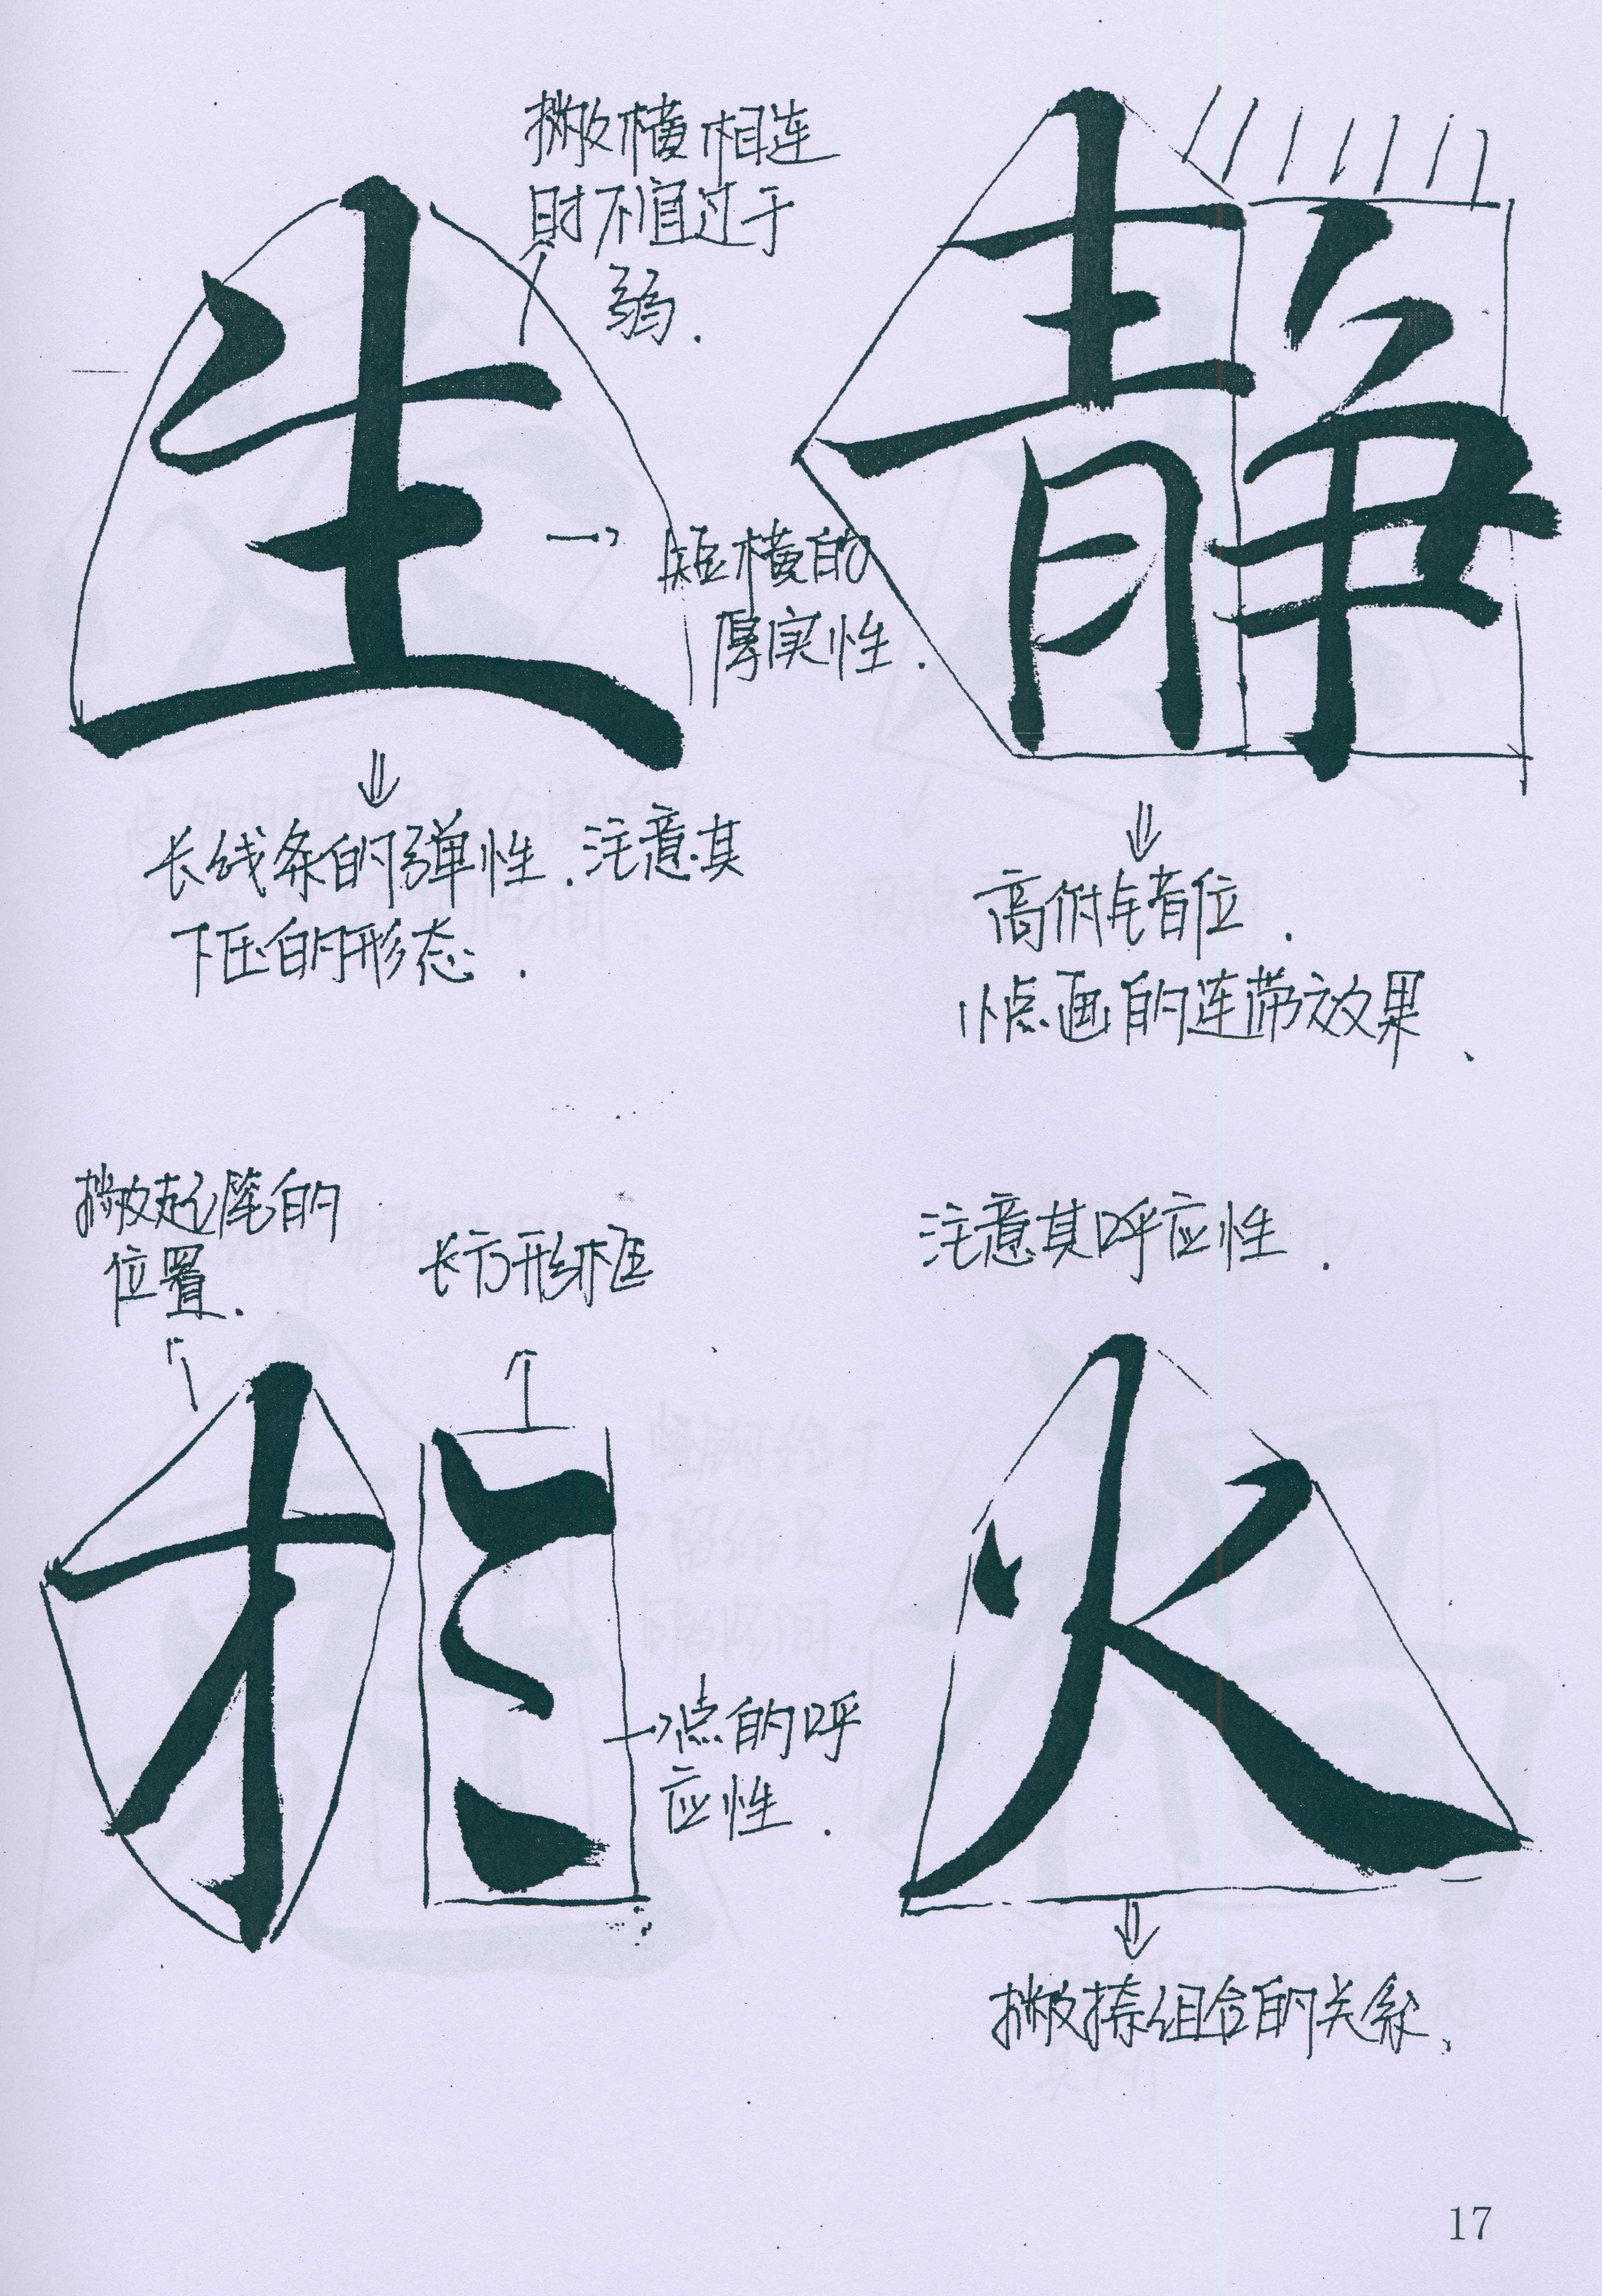 撇横相连
时不宜过于
弱.
生
静
短横的
厚实性.
长线条的弹性.注意其
下压的形态.
高低错位.
小点画的连带效果、
撇起笔的
位置.
长方形框
注意其呼应性.
火
点的呼
应性.
撇捺组合的关系、
17